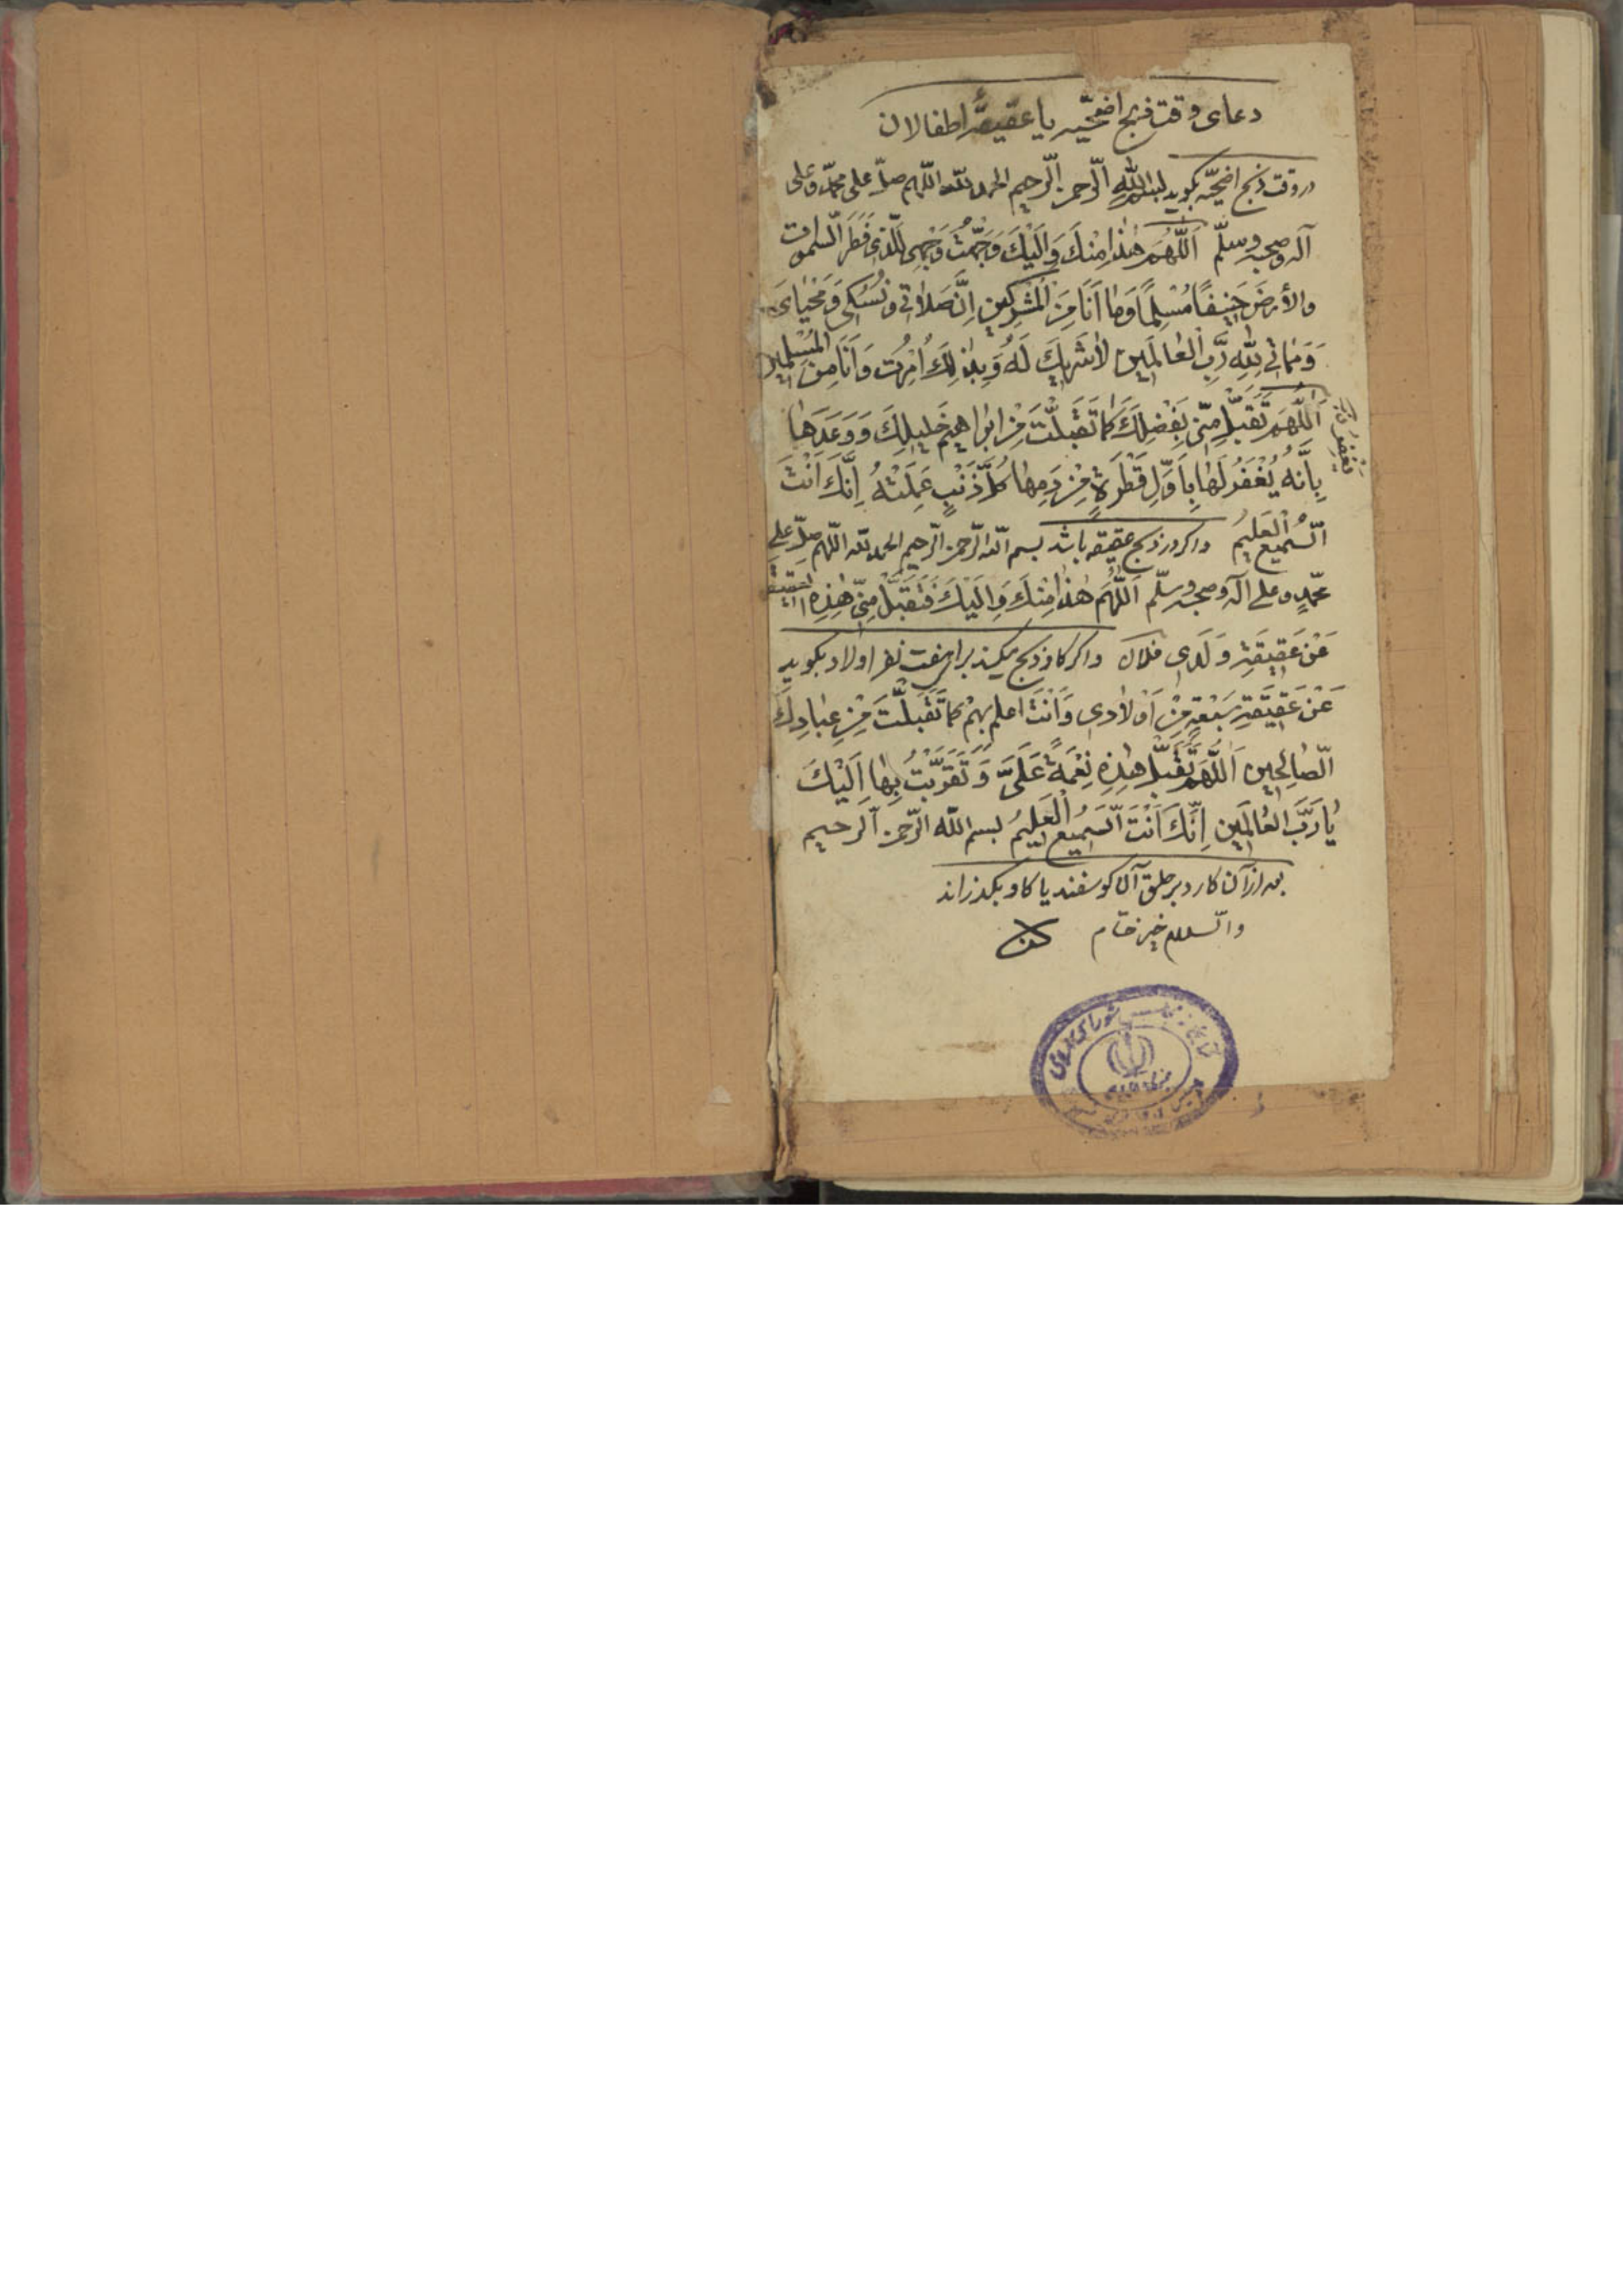 دعای وقت ذبح اضحیّه یا عقیقهٔ اطفالان
در وقت ذبح اضحیّه بگوید بسم اللّه الرّحمن الرّحیم الحمد للّه اللّهم صلّ علی محمّد وعلی
آله وصحبه وسلّم اَللّهُمَّ هٰذا مِنْكَ وَاِلَیْكَ وَجَّهْتُ وَجْهِیَ لِلَّذی فَطَرَ السَّمٰوات
والأرضَ حَنیفًا مُسْلِمًا وَمٰا اَنَا مِنَ الْمُشْرِكین اِنَّ صَلاٰتی وَنُسُكی وَمَحْیٰایَ
وَمَمٰاتی لِلّهِ رَبِّ الْعٰالَمین لاٰشَریكَ لَهُ وَبِذٰلِكَ اُمِرْت وَاَنَا مِنَ الْمُسْلِمین
اَللّهُمَّ تَقَبَّلْ مِنّی بِفَضْلِكَ كَمٰا تَقَبَّلْتَ مِنْ ابراهیمَ خَلیلِكَ وَوَعَدَهٰا
بِاَنَّهُ یُغْفَرُ لَهٰا بِاَوَّلِ قَطْرَةٍ مِنْ دَمِهٰا كُلُّ ذَنْبٍ عَمِلَتْهُ اِنَّكَ اَنْتَ
السَّمیعُ الْعَلیمُ واكر در ذبح عقیقه باشد بسم اللّه الرّحمن الرّحیم الحمد للّه اللّهم صلّ علی
محمّدٍ وعلی آله وصحبه وسلّم اَللّهُمَّ هٰذا مِنْكَ وَاِلَیْكَ فَتَقَبَّلْ مِنّی هٰذِهِ العقیقة
عَنْ عَقیقَةِ وَلَدی فلان واكر كاو ذبح میكند برای هفت نفر اولاد بكوید
عَنْ عَقیقَةِ سَبْعَةٍ مِنْ اَوْلاٰدی وَاَنْتَ اعلم بِهِمْ كما تَقَبَّلْتَ مِنْ عِبٰادِكَ
الصّٰالِحین اَللّهُمَّ تَقَبَّلْ هٰذِهِ نِعْمَةً عَلَیَّ وَتَقَرَّبْتُ بِهٰا اِلَیْكَ
یٰا رَبَّ الْعٰالَمین اِنَّكَ اَنْتَ السَّمیعُ الْعَلیمُ بسم اللّه الرّحمن الرّحیم
بعد از آن كارد بر حلق آن كوسفند یا كاو بكذراند
والسّلام خیر ختام